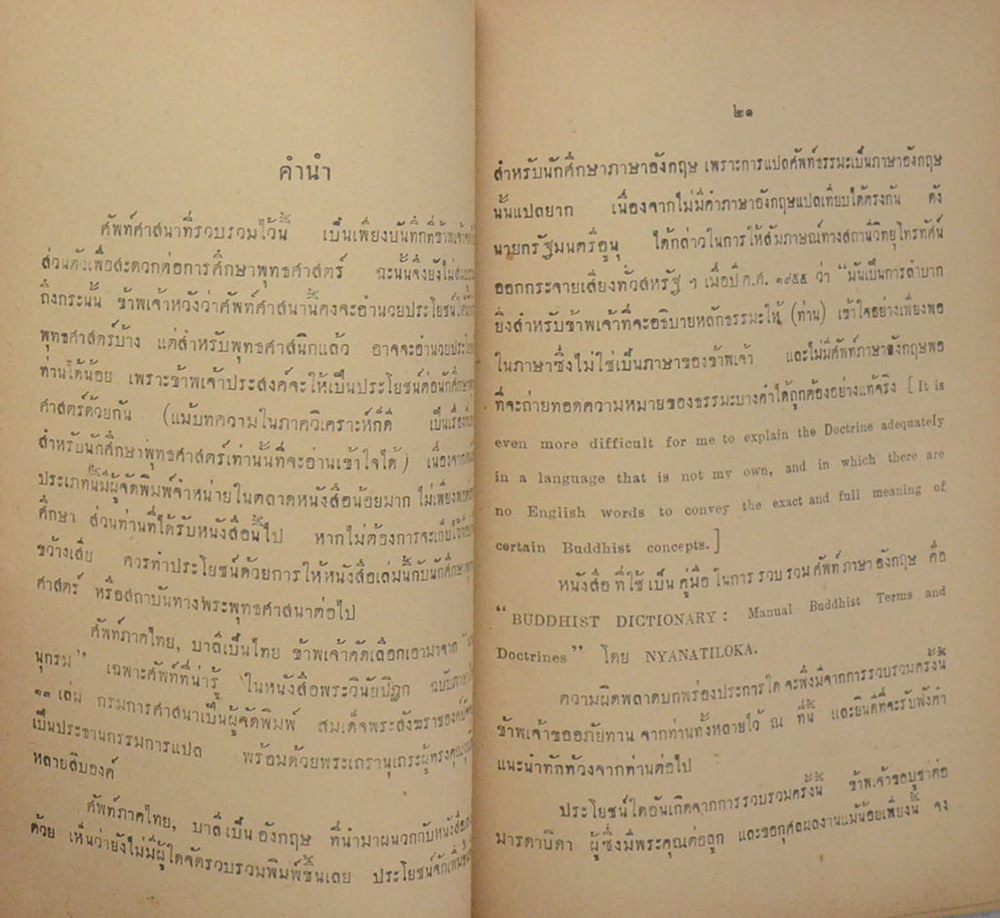 คำนำ
ศัพท์ศาสนาที่รวบรวมไว้นี้ เป็นเพียงบันทึกที่ข้าพเจ้า
ส่วนตัวเพื่อสะดวกต่อการศึกษาพุทธศาสตร์ ฉะนั้นจึงยังไม่
ถึงกระนั้น ข้าพเจ้าหวังว่าศัพท์ศาสนานี้คงจะอำนวยประโยชน์
พุทธศาสตร์บ้าง แต่สำหรับพุทธศาสนิกแล้ว อาจจะอำนวย
ท่านได้น้อย เพราะข้าพเจ้าประสงค์จะให้เป็นประโยชน์ต่อ
ศาสตร์ด้วยกัน (แม้บทความในภาควิเคราะห์ก็ดี
สำหรับนักศึกษาพุทธศาสตร์เท่านั้นที่จะอ่านเข้าใจได้)
ประเภทนี้มีผู้จัดพิมพ์จำหน่ายในตลาดหนังสือน้อยมาก
ศึกษา ส่วนท่านที่ได้รับหนังสือนี้ไป หากไม่ต้องการจะเก็บไว้
ขว้างเสีย ควรทำประโยชน์ด้วยการให้หนังสือเล่มนี้กับ
ศาสตร์ หรือสถาบันทางพระพุทธศาสนาต่อไป
ศัพท์ภาคไทย, บาลีเป็นไทย ข้าพเจ้าคัดเลือกเอามาจาก
นุกรม" เฉพาะศัพท์ที่น่ารู้ ในหนังสือพระวินัยปิฎก
๑๓ เล่ม กรมการศาสนาเป็นผู้จัดพิมพ์
เป็นประธานกรรมการแปล พร้อมด้วยพระเถรานุเถระ
หลายสิบองค์
ศัพท์ภาคไทย, บาลีเป็นอังกฤษ ที่นำมาผนวกกับ
ด้วย เห็นว่ายังไม่มีผู้ใดจัดรวบรวมพิมพ์ขึ้นเลย
๒๑
สำหรับนักศึกษาภาษาอังกฤษ เพราะการแปลศัพท์ธรรมะเป็นภาษาอังกฤษ
นั้นแปลยาก เนื่องจากไม่มีคำภาษาอังกฤษแปลเทียบได้ตรงกัน ดัง
นายกรัฐมนตรีอูนุ ได้กล่าวในการให้สัมภาษณ์ทางสถานีวิทยุโทรทัศน์
ออกกระจายเสียงทั่วสหรัฐ ฯ เมื่อปี ค.ศ. ๑๙๕๕ ว่า "มันเป็นการลำบาก
ยิ่งสำหรับข้าพเจ้าที่จะอธิบายหลักธรรมะให้ (ท่าน) เข้าใจอย่างเพียงพอ
ในภาษาซึ่งไม่ใช่เป็นภาษาของข้าพเจ้า และไม่มีศัพท์ภาษาอังกฤษพอ
ที่จะถ่ายทอดความหมายของธรรมะบางคำได้ถูกต้องอย่างแท้จริง [ It is
even more difficult for me to explain the Doctrine adequately
in a language that is not my own, and in which there are
no English words to convey the exact and full meaning of
certain Buddhist concepts. ]
หนังสือ ที่ใช้ เป็น คู่มือ ในการ รวบ รวม ศัพท์ ภาษา อังกฤษ คือ
"BUDDHIST DICTIONARY : Manual Buddhist Terms and
Doctrines" โดย NYANATILOKA.
ความผิดพลาดบกพร่องประการใด จะพึงมีจากการรวบรวมครั้งนี้
ข้าพเจ้าขออภัยทาน จากท่านทั้งหลายไว้ ณ ที่นี้ และยินดีที่จะรับฟังคำ
แนะนำทักท้วงจากท่านต่อไป
ประโยชน์ใดอันเกิดจากการรวบรวมครั้งนี้ ข้าพเจ้าขอบูชาต่อ
มารดาบิดา ผู้ซึ่งมีพระคุณต่อลูก และขอกุศลผลงานแม้น้อยเพียงนี้ จง